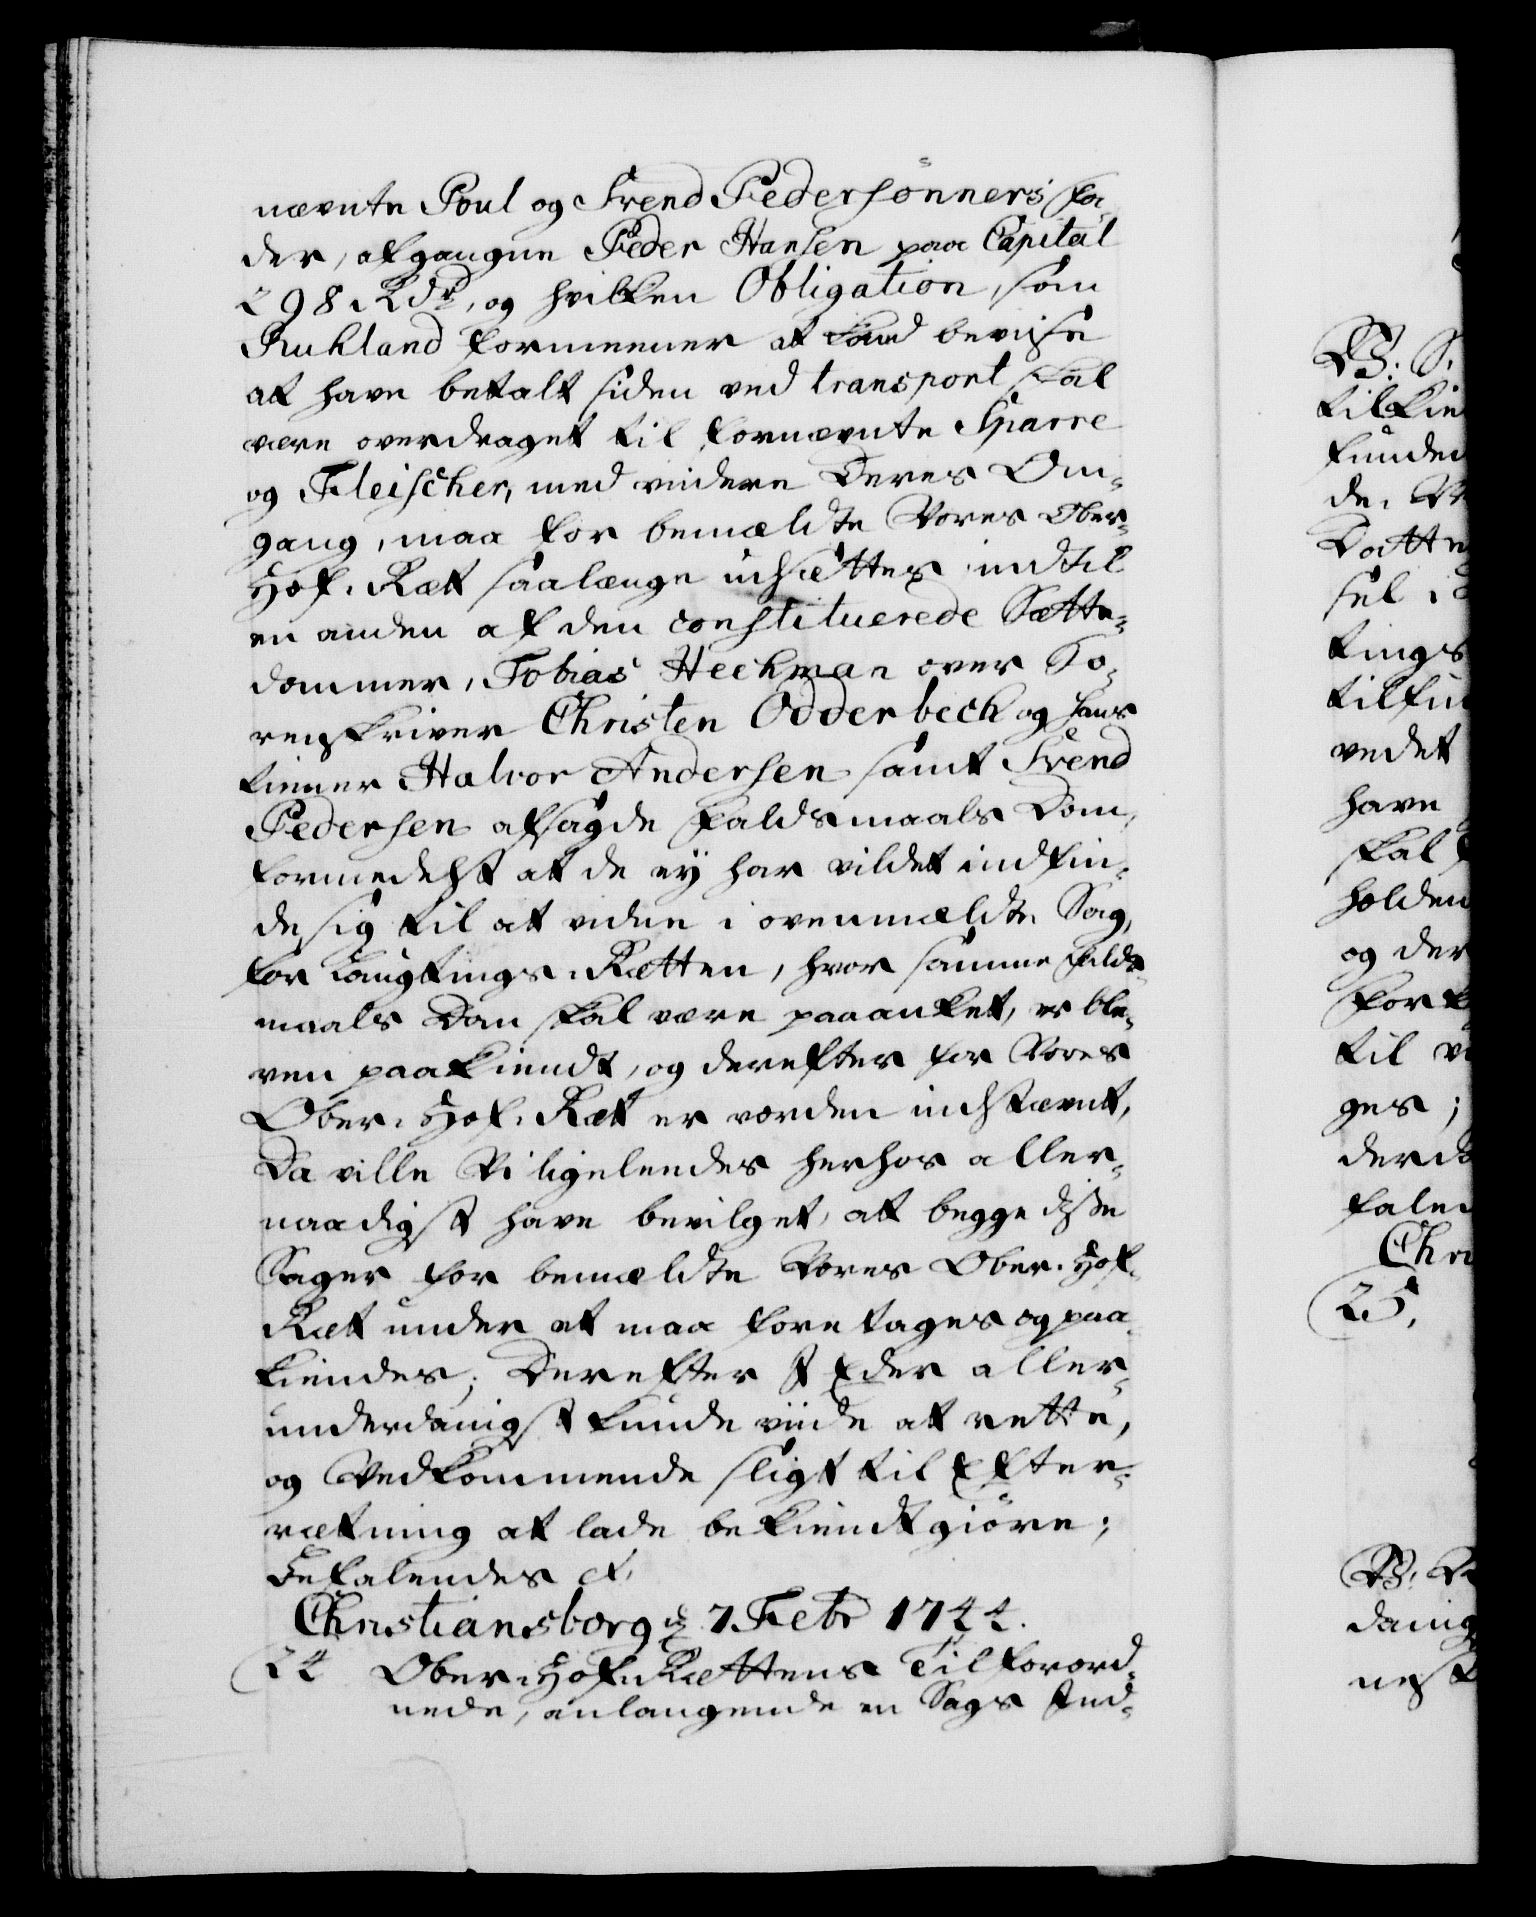 nævnte Poul og Svend Pedersønners Fa-
der, afgangne Peder Hansen paa Capital
298 Rdr, og hvilken Obligation, som
Ruhland formeener at kand beviise
at have betalt siden ved transport skal
være overdraget til fornævnte Sparre
og Fleischer, med viidere deres Om-
gang, maa for bemældte Vores Ober-
Hof-Ræt saalænge udsættes indtil
en anden af den constituerede Sætte-
dommer, Tobias Heckman over So-
renskriver Christen Odderbech og hans
tiener Halvor Andersen samt Svend
Pedersen afsagde Faldsmaals Dom,
formedelst at de ey har villet indfin-
de sig til at vidne i ovenmældte Sag,
for Laugtings-Rætten, hvor samme Falds-
maals Dom skal være paaanket, er ble-
ven paakiendt, og derefter for Vores
Ober-Hof-Ræt er vorden indstævnt,
Da ville Vi ligeleedes herhos aller-
naadigst have bevilget, at begge disse
Sager for bemældte Vores Ober-Hof-
Ræt under et maa foretages og paa-
kiendes; Derefter I Eder aller-
underdanigst kunde viide at rette,
og Vedkommende sligt til Efter-
rætning at lade bekiendtgiøre;
Befalendes etc.
Christiansborg d. 7. Febr 1744.
24 Ober-Hof-Rættens Tilforord-
nede, anlangende en Sags Ind-
B: S.
tilkie
funden
de, V
Dotte
sel i
tings
tilfu
vedet
have
skal
holden
og der
for
til v
ges;
derd
falen
Chri
25,
danig